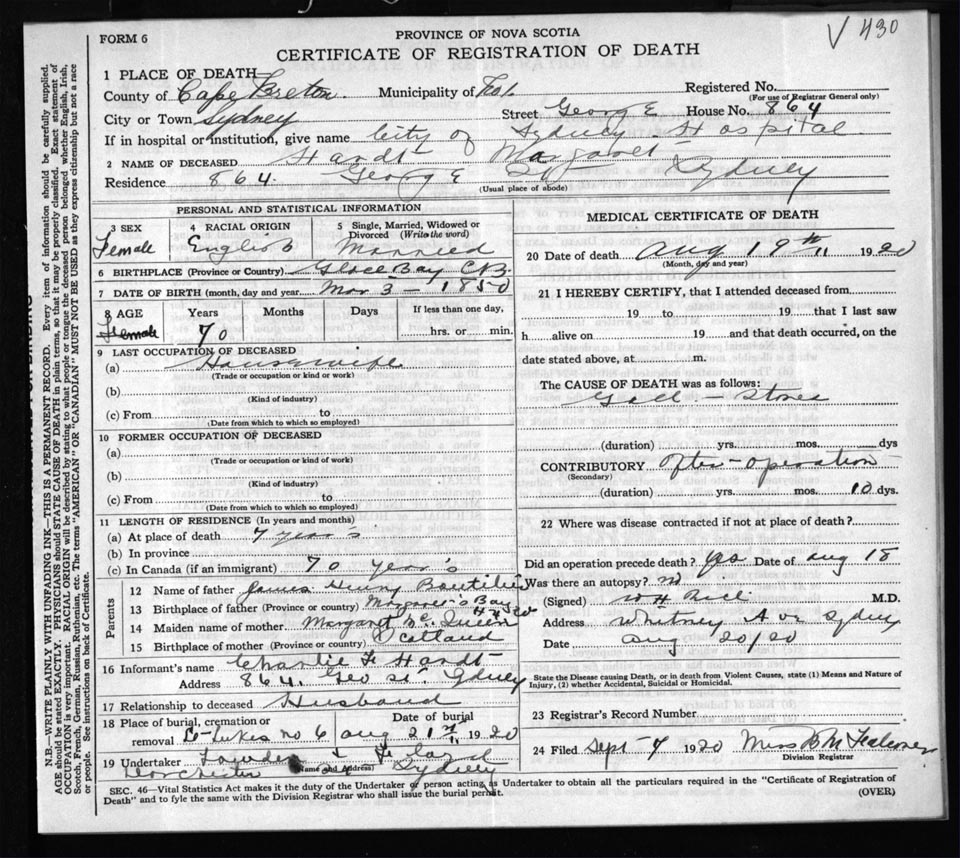 V 430
FORM 6
PROVINCE OF NOVA SCOTIA
CERTIFICATE OF REGISTRATION OF DEATH
1 PLACE OF DEATH
County of Cape Breton. Municipality of No 1. Registered No.
(For use of Registrar General only)
City or Town Sydney Street George House No. 864
If in hospital or institution, give name City of Sydney Hospital
2 NAME OF DECEASED Hardt Margaret
Residence 864. George St Sydney
(Usual place of abode)
PERSONAL AND STATISTICAL INFORMATION
3 SEX Female
4 RACIAL ORIGIN English
5 Single, Married, Widowed or Divorced (Write the word) Married
6 BIRTHPLACE (Province or Country) Glace Bay C.B.
7 DATE OF BIRTH (month, day and year) Mar 3 - 1850
8 AGE Female Years 70 Months Days If less than one day, hrs. or min.
9 LAST OCCUPATION OF DECEASED
(a) Housewife
(Trade or occupation or kind or work)
(b)
(Kind of industry)
(c) From to
(Date from which to which so employed)
10 FORMER OCCUPATION OF DECEASED
(a)
(Trade or occupation or kind of work)
(b)
(Kind of industry)
(c) From to
(Date from which to which so employed)
11 LENGTH OF RESIDENCE (In years and months)
(a) At place of death 7 year's
(b) In province
(c) In Canada (if an immigrant) 70 year's
Parents
12 Name of father James Henry Boutilier
13 Birthplace of father (Province or country) Margaret's Bay
14 Maiden name of mother Margaret Mc Queen
15 Birthplace of mother (Province or country) Scotland
16 Informant's name Charlie F Hardt
Address 864. Geo St. Sydney
17 Relationship to deceased Husband
18 Place of burial, cremation or removal St Lukes no 6 Date of burial Aug 21st 1920
19 Undertaker
(Name and address)
Dorchester Sydney
MEDICAL CERTIFICATE OF DEATH
20 Date of death Aug 19th 1920
(Month, day and year)
21 I HEREBY CERTIFY, that I attended deceased from
19 to 19 that I last saw
h alive on 19 and that death occurred, on the
date stated above, at m.
The CAUSE OF DEATH was as follows:
Gall - Stones
(duration) yrs. mos. dys
CONTRIBUTORY After-operation
(Secondary)
(duration) yrs. mos. 10 dys.
22 Where was disease contracted if not at place of death?
Did an operation precede death? Yes Date of Aug 18
Was there an autopsy? no
(Signed) W H Rice M.D.
Address Whitney Ave Sydney
Date Aug 20/20
State the Disease causing Death, or in death from Violent Causes, state (1) Means and Nature of Injury, (2) whether Accidental, Suicidal or Homicidal.
23 Registrar's Record Number
24 Filed Sept 7 1920 Miss
Division Registrar
SEC. 46—Vital Statistics Act makes it the duty of the Undertaker or person acting as Undertaker to obtain all the particulars required in the "Certificate of Registration of
Death" and to fyle the same with the Division Registrar who shall issue the burial permit. (OVER)
N.B.—WRITE PLAINLY WITH UNFADING INK—THIS IS A PERMANENT RECORD. Every item of information should be carefully supplied.
AGE should be stated EXACTLY. PHYSICIANS should STATE CAUSE OF DEATH in plain terms, so that it may be properly classified. Exact statement of
OCCUPATION is very important. RACIAL ORIGIN will be described by stating to what people or tongue the deceased person belonged whether English, Irish,
Scotch, French, German, Russian, Ruthenian, etc. The terms "AMERICAN" OR "CANADIAN" MUST NOT BE USED as they express citizenship but not a race
or people. See instructions on back of Certificate.